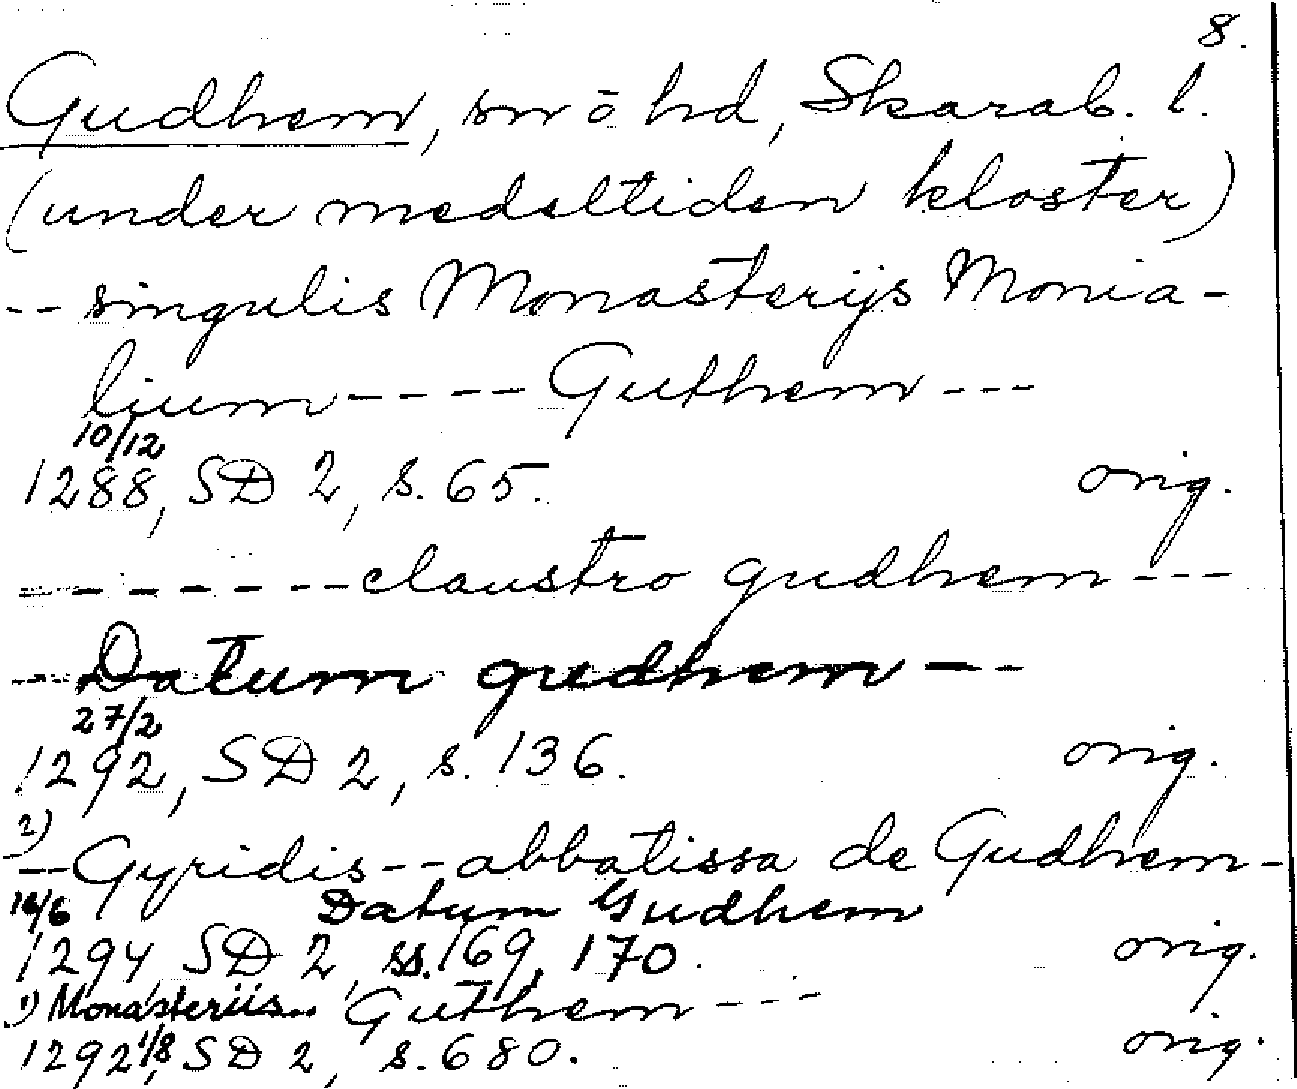 8.
Gudhem, sn ö hd, Skarab. l.
(under medeltiden kloster)
-- singulis Monasterijs Monia-
lium ---- Guthem ---
10/12
1288, SD 2, s. 65. orig.
------- claustro gudhem ---
-- Datum gudhem ---
27/2
1292, SD 2, s. 136. orig.
2)
-- Gyridis -- abbatissa de Gudhem -
16/6 Datum Gudhem
1294, SD 2, ss. 169, 170. orig.
1) Monasteriis... Guthem ---
1292 1/8, SD 2, s. 680. orig.